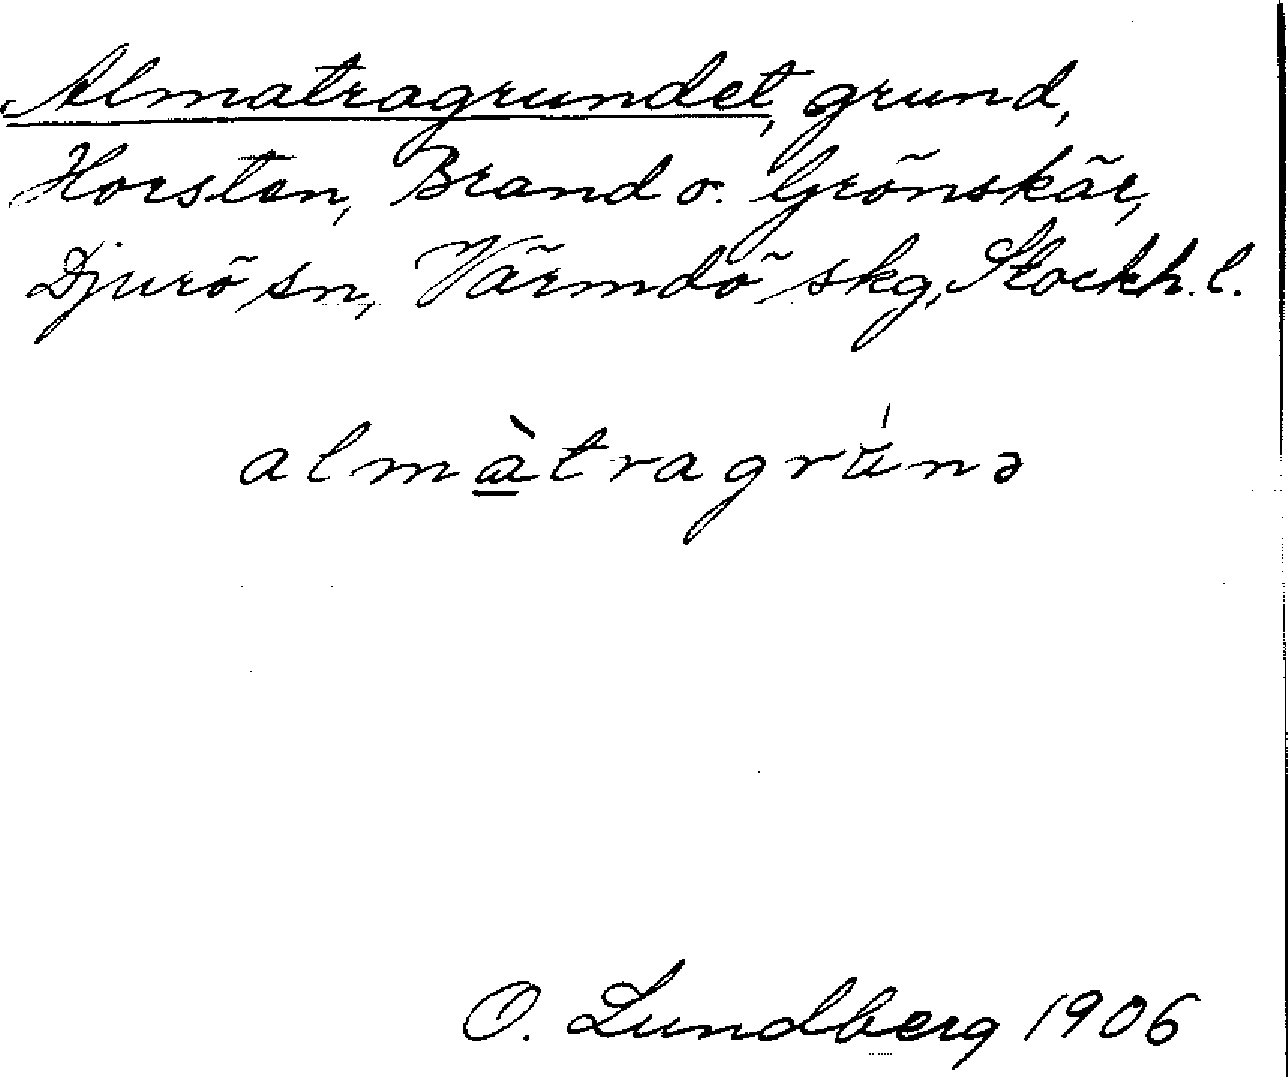 Almatragrundet, grund,
Horsten, Brand o. Grönskär,
Djurö sn, Värmdö skg, Stockh. l.
almàtragrúnə
O. Lundberg 1906